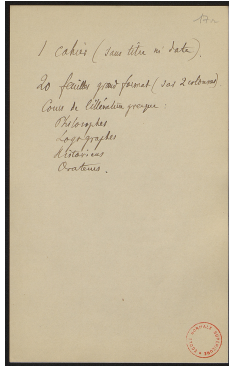 17a
1 cahier (sans titre ni date).
20 feuilles grand format (sur 2 colonnes)
Cours de littérature grecque :
Philosophes
Logographes
Historiens
Orateurs.
NORMALE SUPÉRIEURE